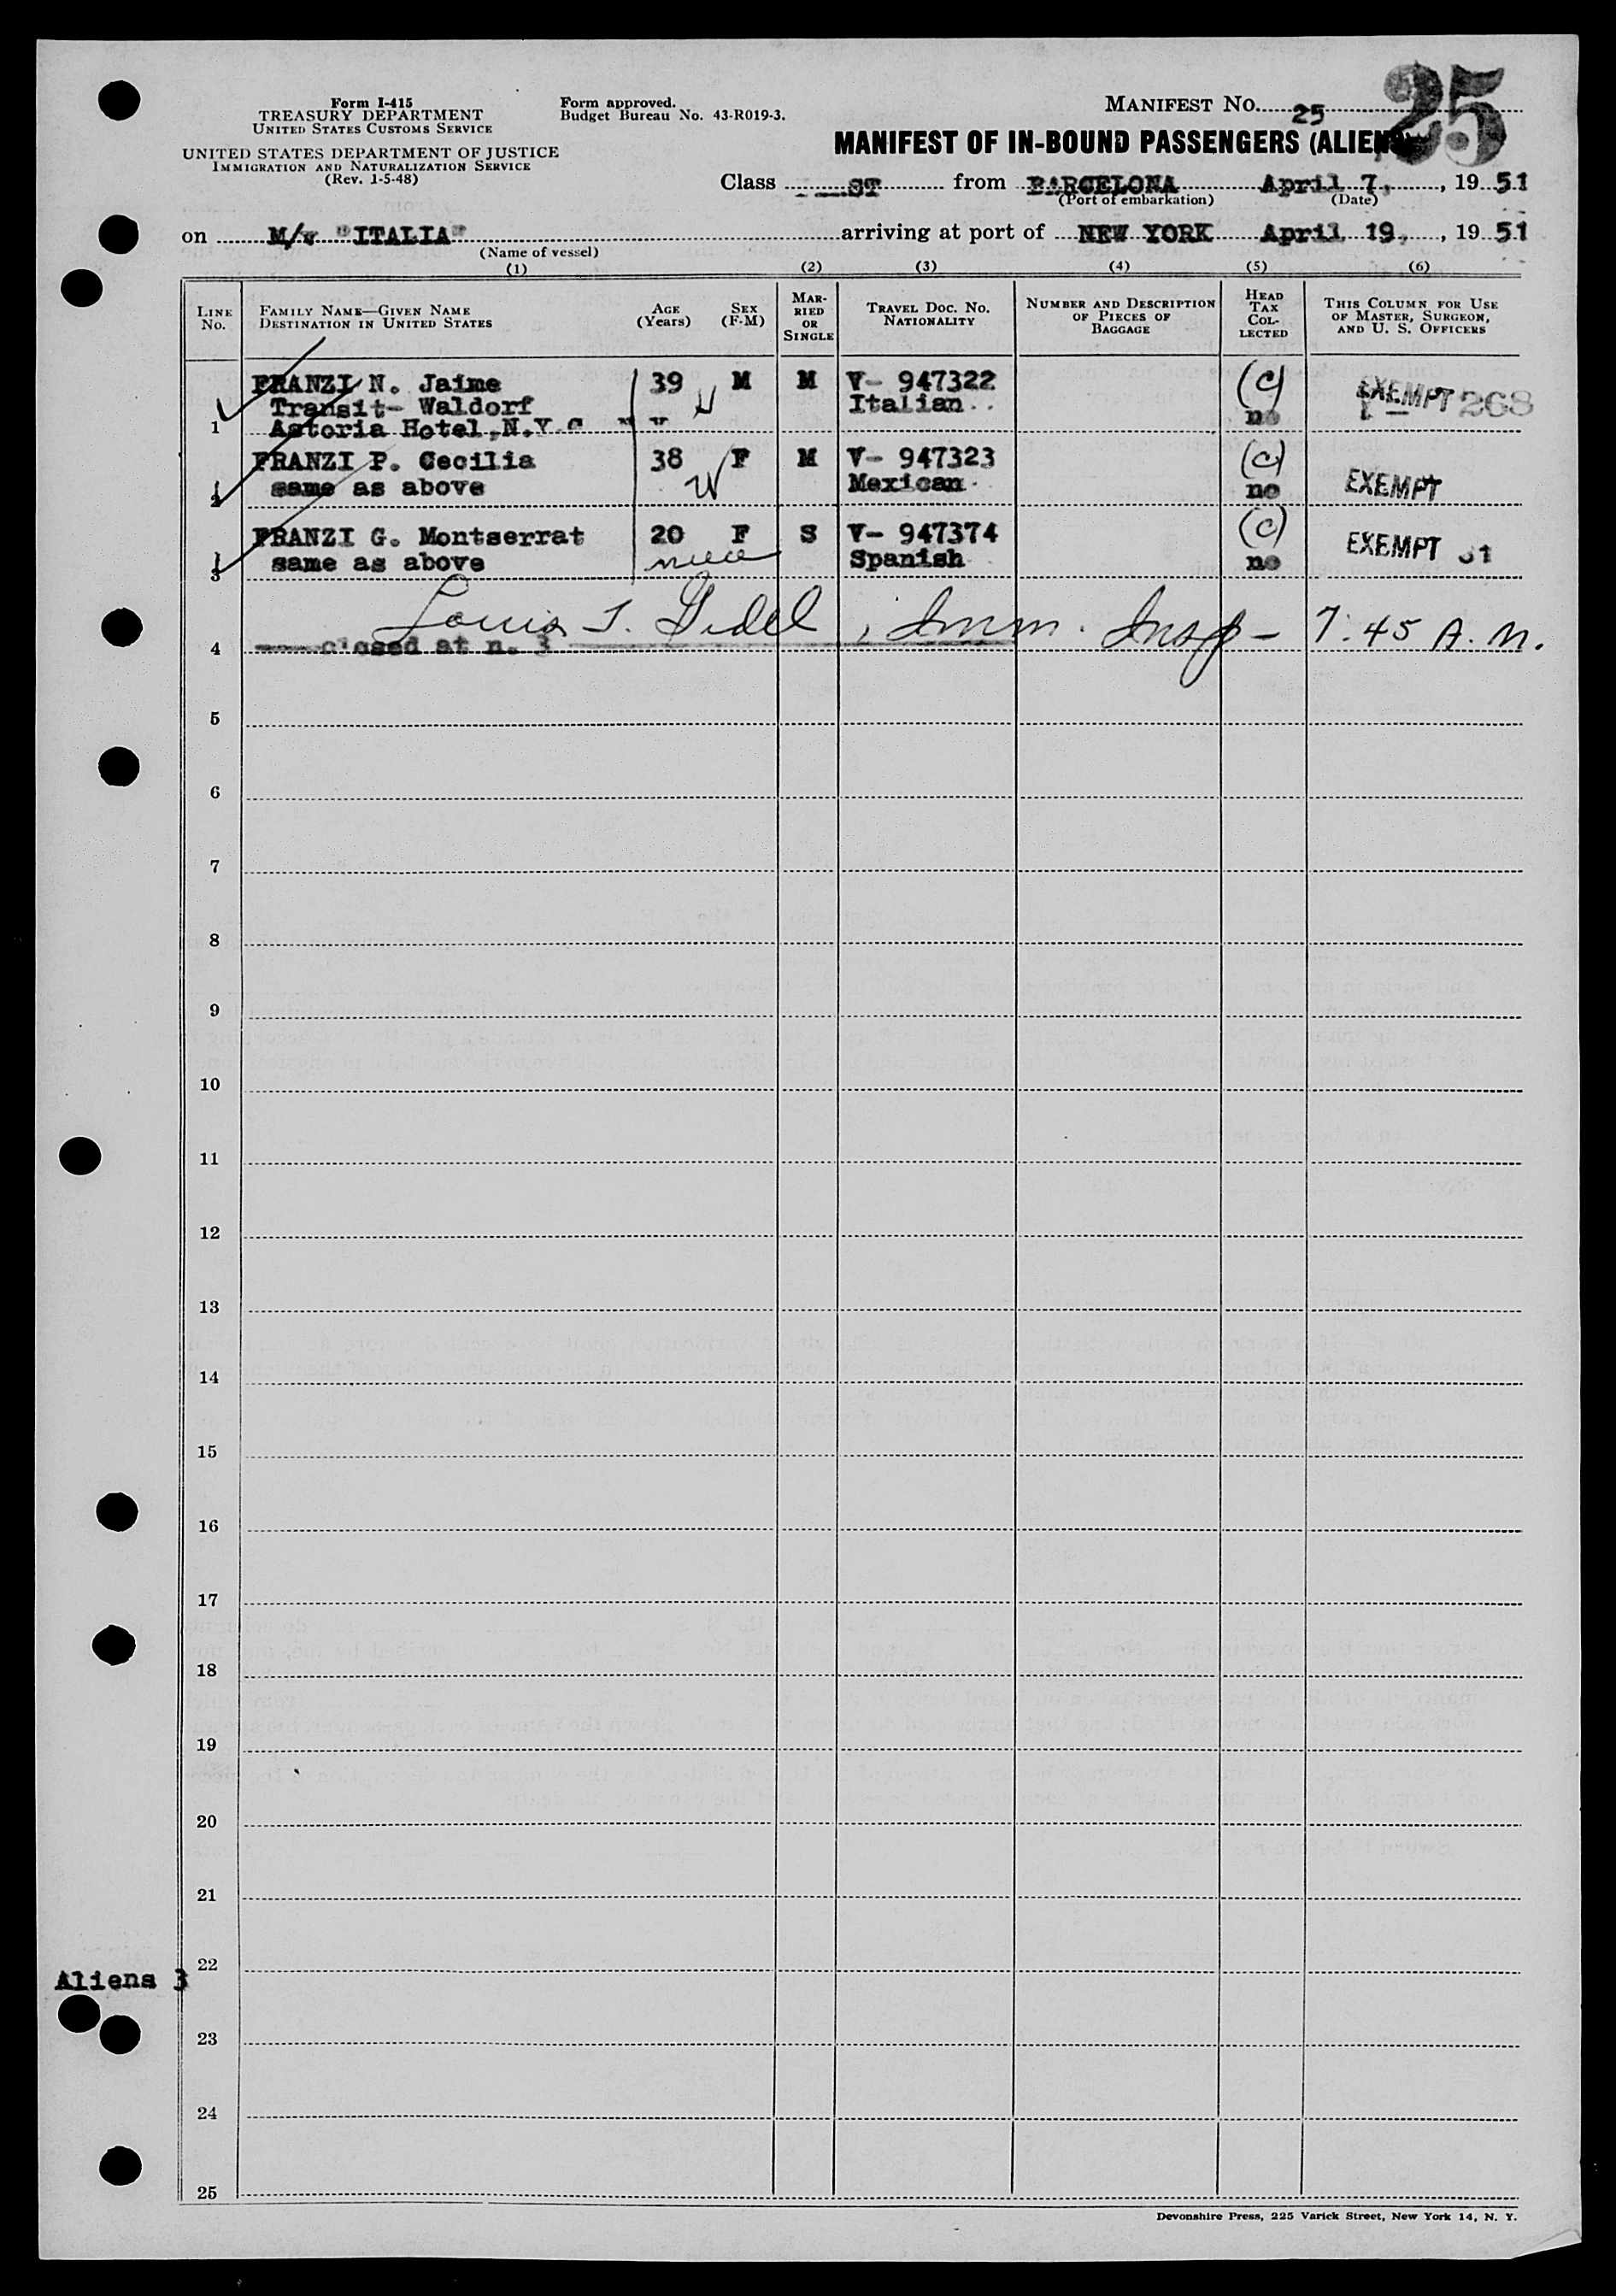 Form I-415
TREASURY DEPARTMENT
UNITED STATES CUSTOMS SERVICE
UNITED STATES DEPARTMENT OF JUSTICE
IMMIGRATION AND NATURALIZATION SERVICE
(Rev. 1-5-48)
Form approved.
Budget Bureau No. 43-R019-3.
MANIFEST NO. 25
25
MANIFEST OF IN-BOUND PASSENGERS (ALIENS)
Class ST from BARCELONA April 7, , 19 51
(Port of embarkation) (Date)
on M/v "ITALIA" arriving at port of NEW YORK April 19, , 19 51
(Name of vessel)
(1) (2) (3) (4) (5) (6)
LINE NO.
FAMILY NAME—GIVEN NAME
DESTINATION IN UNITED STATES
AGE (YEARS)
SEX (F-M)
MARRIED OR SINGLE
TRAVEL DOC. NO.
NATIONALITY
NUMBER AND DESCRIPTION OF PIECES OF BAGGAGE
HEAD TAX COLLECTED
THIS COLUMN FOR USE OF MASTER, SURGEON, AND U. S. OFFICERS
FRANZI N. Jaime 39 M M V- 947322 (c) EXEMPT 268
Transit- Waldorf Italian
1 Astoria Hotel, N.Y.C no
FRANZI P. Cecilia 38 F M V- 947323 (c)
2 same as above Mexican no EXEMPT
FRANZI G. Montserrat 20 F S V- 947374 (c) EXEMPT 51
3 same as above niece Spanish no
Louis T. , Imm. Insp - 7:45 A.M.
4 closed at n. 3
5
6
7
8
9
10
11
12
13
14
15
16
17
18
19
20
21
22
Aliens 3
23
24
25
Devonshire Press, 225 Varick Street, New York 14, N. Y.